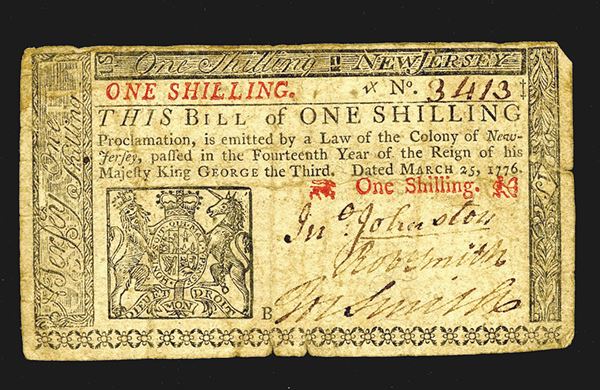 One Shilling 1 NEW JERSEY
ONE SHILLING. No. 3413
THIS BILL of ONE SHILLING
Proclamation, is emitted by a Law of the Colony of New-
Jersey, passed in the Fourteenth Year of the Reign of his
Majesty King GEORGE the Third. Dated MARCH 25, 1776.
One Shilling.
Jno. Johnston
Robt Smith
Jn Smith
B
DIEU ET MON DROIT
Jersey One
Shilling